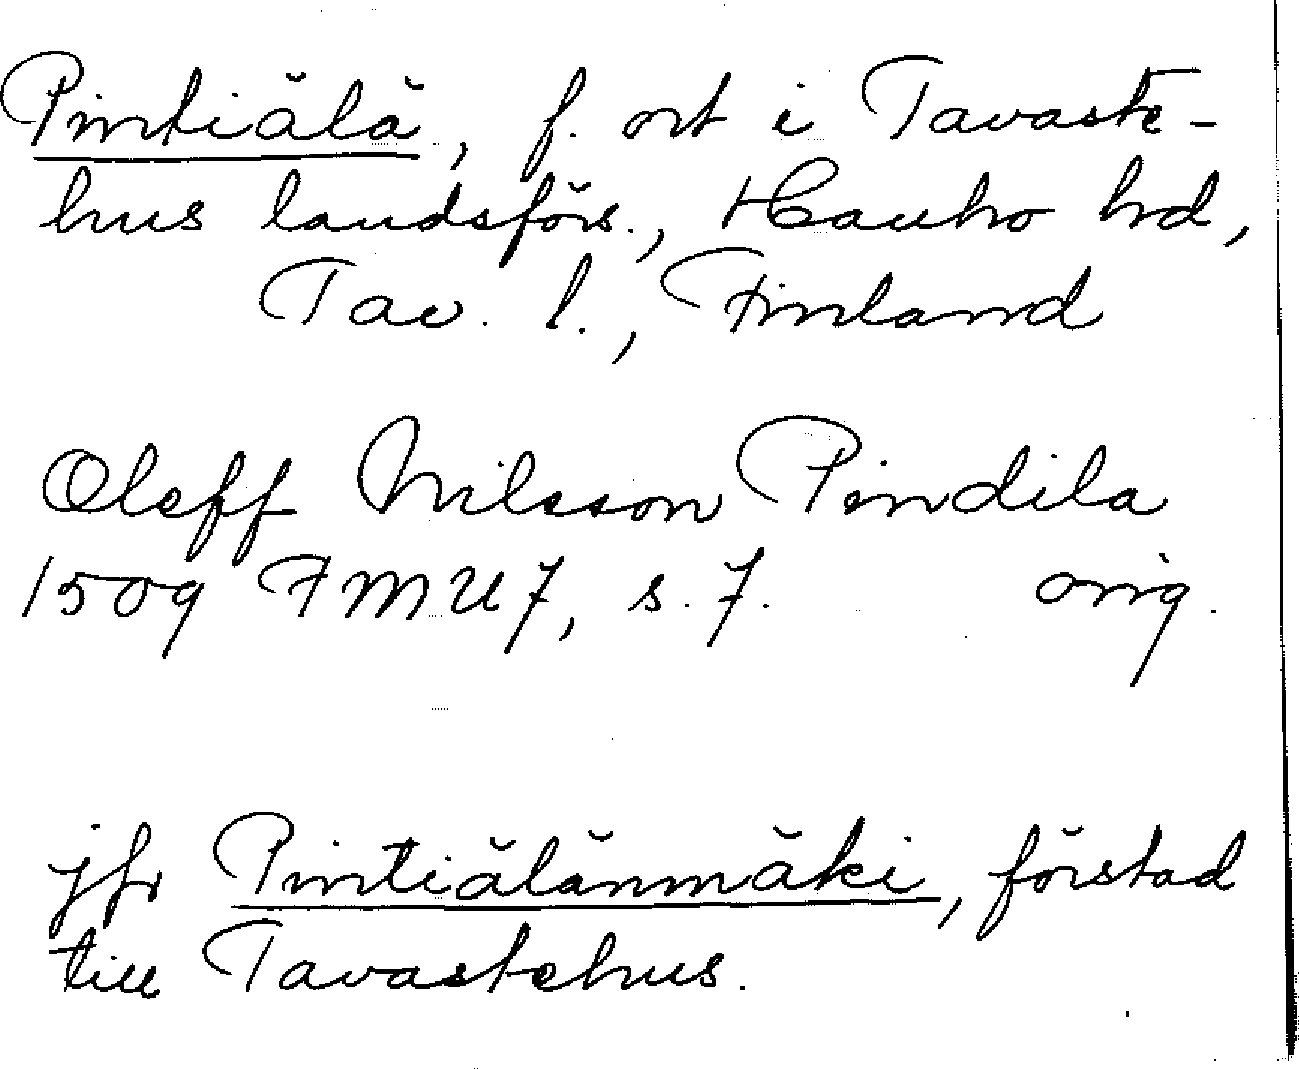 Pintiälä, f. ort i Tavaste-
hus landsförs., Hauho hd,
Tav. l., Finland
Oleff Nilsson Pindila
1509 FMU7, s. 7. orig.
jfr Pintiälänmäki, förstad
till Tavastehus.